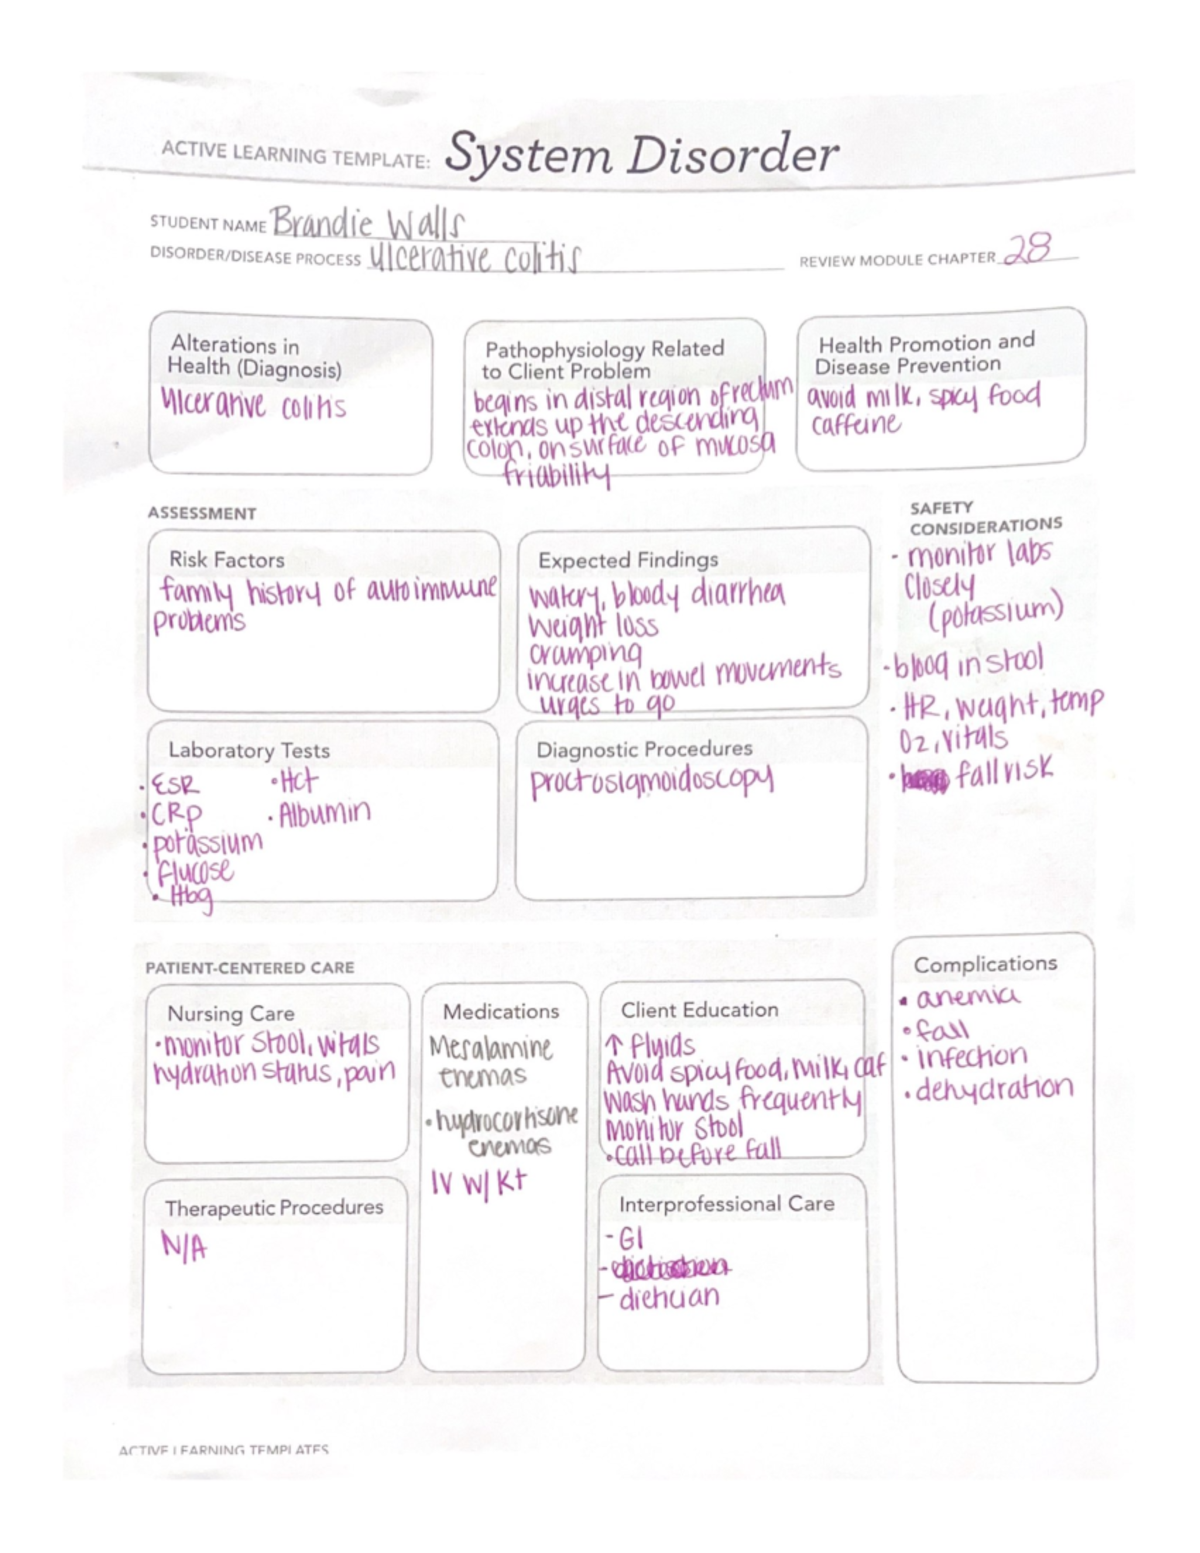 ACTIVE LEARNING TEMPLATE: System Disorder
STUDENT NAME Brandie Walls
DISORDER/DISEASE PROCESS Ulcerative colitis
REVIEW MODULE CHAPTER 28
Alterations in
Health (Diagnosis)
Ulcerative colitis
Pathophysiology Related
to Client Problem
begins in distal region of rectum
extends up the descending
colon, on surface of mucosa
friability
Health Promotion and
Disease Prevention
avoid milk, spicy food
caffeine
ASSESSMENT
Risk Factors
family history of autoimmune
problems
Expected Findings
watery, bloody diarrhea
weight loss
cramping
increase in bowel movements
urges to go
SAFETY
CONSIDERATIONS
- monitor labs
closely
(potassium)
- blood in stool
• HR, weight, temp
O2, vitals
• fall risk
Laboratory Tests
• ESR
• CRP
• potassium
• flucose
• Hbg
• Hct
• Albumin
Diagnostic Procedures
proctosigmoidoscopy
PATIENT-CENTERED CARE
Nursing Care
• monitor stool, vitals
hydration status, pain
Medications
Mesalamine
enemas
• hydrocortisone
enemas
IV w/ K+
Client Education
↑ fluids
Avoid spicy food, milk, caf
wash hands frequently
monitor stool
• call before fall
Therapeutic Procedures
N/A
Interprofessional Care
- GI
- dietician
Complications
• anemia
• fall
• infection
• dehydration
ACTIVE LEARNING TEMPLATES